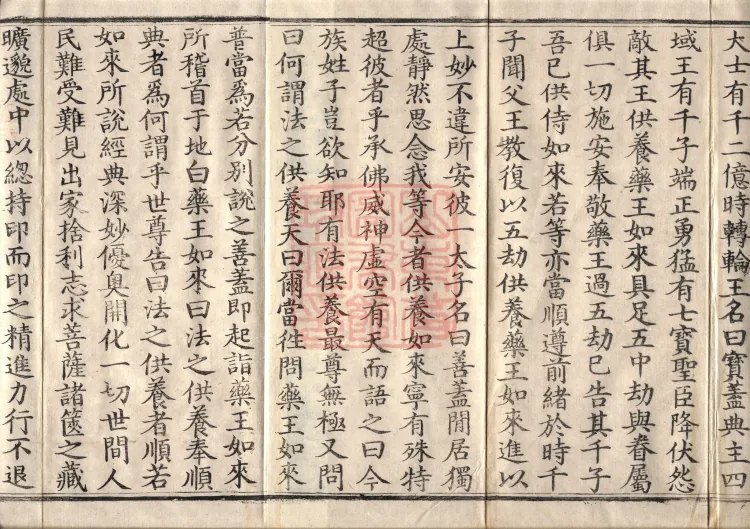 大士有千二億時轉輪王名曰寶蓋典主四
域王有千子端正勇猛有七寶聖臣降伏怨
敵其王供養藥王如來具足五中劫與眷屬
俱一切施安奉敬藥王過五劫已告其千子
吾已供侍如來若等亦當順遵前緒於時千
子聞父王教復以五劫供養藥王如來進以
上妙不違所安彼一太子名曰善蓋閒居獨
處靜然思念我等今者供養如來寧有殊特
超彼者乎承佛威神虛空有天而語之曰今
族姓子豈欲知耶有法供養最尊無極又問
曰何謂法之供養天曰爾當往問藥王如來
普當為若分別說之善蓋即起詣藥王如來
所稽首于地白藥王如來曰法之供養奉順
典者為何謂乎世尊告曰法之供養者順若
如來所說經典深妙優奧開化一切世間人
民難受難見出家捨利志求菩薩諸篋之藏
曠邈處中以總持印而印之精進力行不退